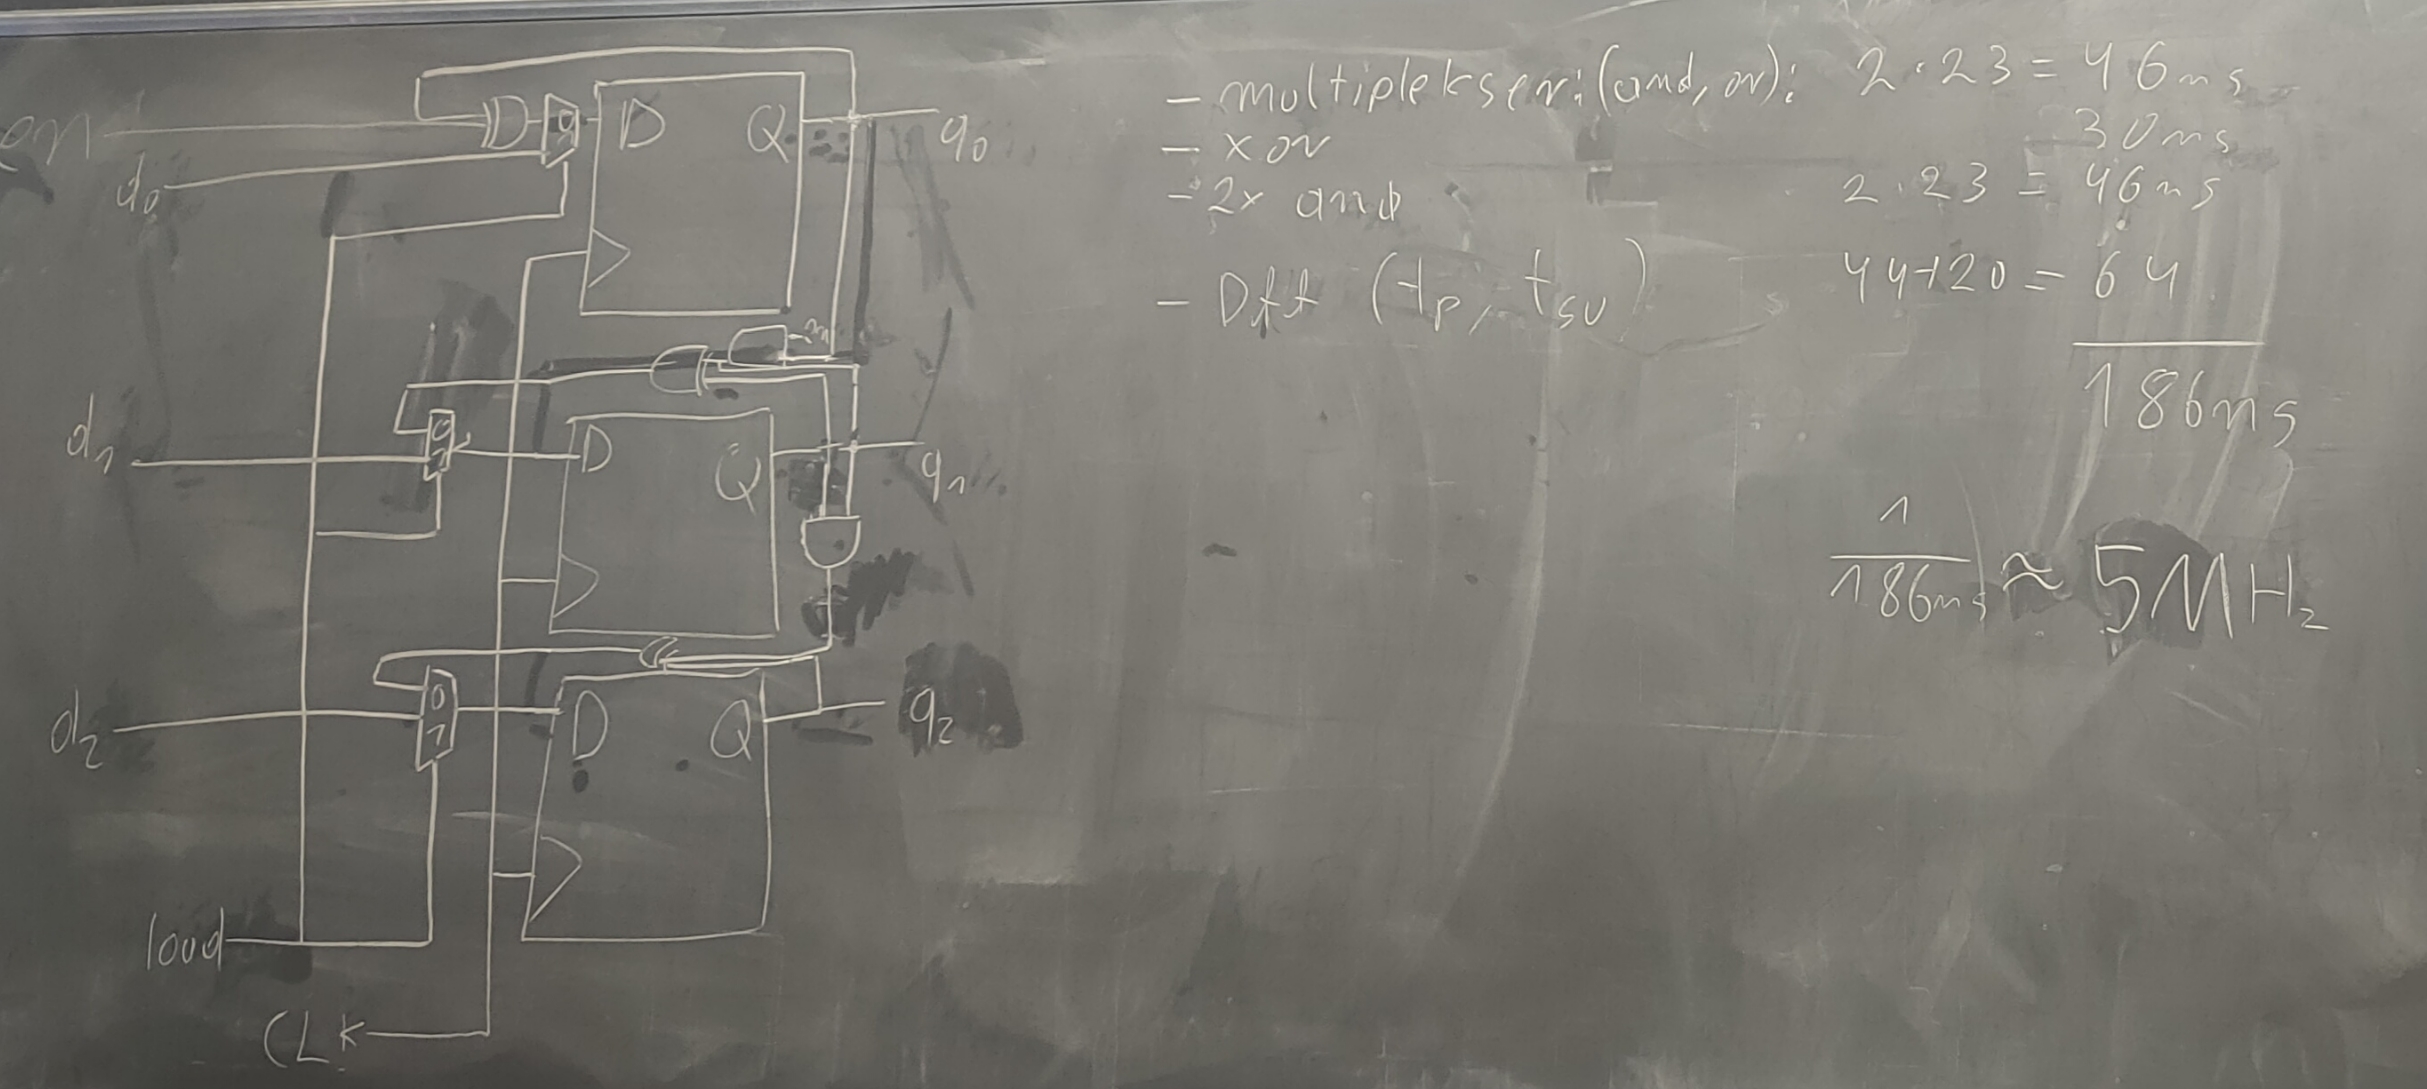 en
D Q q0
d0
d1
0
1
D Q q1
d2
0
1
D Q q2
load
CLK
- multiplekser: (and, or): 2·23 = 46ns
- xor 30ns
- 2x and 2·23 = 46ns
- Dff (tp, tsu) 44+20 = 64
186ns
1
186ns ≈ 5MHz